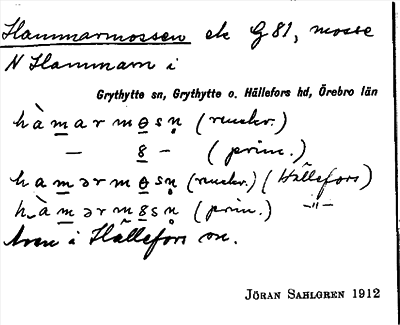 Hammarmossen ek G 81, mosse
N Hammarn i
Grythytte sn, Grythytte o. Hällefors hd, Örebro län
hàmarmɵsn̥ (ruckv.)
— 8 — (prim.)
hamərmɵsn̥ (ruckv.) (Hällefors)
hàmərm8sn̥ (prim.) —"—
Även i Hällefors sn.
JÖRAN SAHLGREN 1912